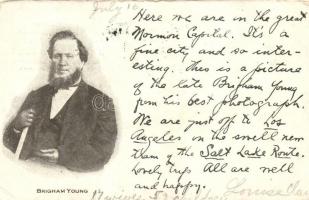 July 10
Here we are in the great
Mormon Capital. It's a
fine city and so inter-
esting. This is a picture
of the late Brigham Young
from his best photograph.
We are just off to Los
Angeles in the swell new
train of the Salt Lake Route.
Lovely trip. All are well
and happy.
Louise
BRIGHAM YOUNG
17 wives